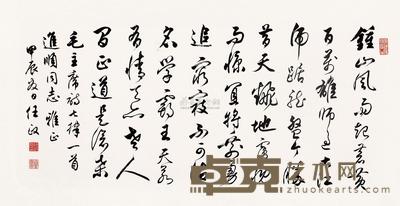 鍾山風雨起蒼黃
百萬雄師過大江
虎踞龍盤今勝
昔天翻地覆慨
而慷宜將剩勇
追窮寇不可沽
名學霸王天若
有情天亦老人
間正道是滄桑
毛主席詩七律一首
進順同志雅正
甲辰夏日任政
卓克艺术网
zhuokearts.com